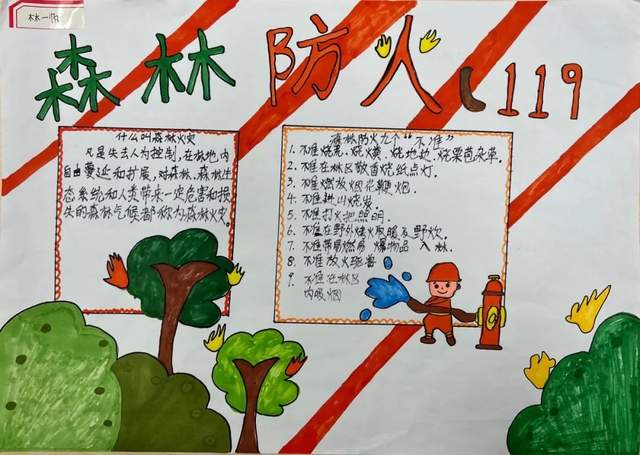 林一帆
森林防火 119
什么叫森林火灾
凡是失去人为控制,在林地内
自由蔓延和扩展,对森林、森林生
态系统和人类带来一定危害和损
失的森林气候都称为森林火灾。
森林防火九个"不准"
1. 不准烧荒、烧粪、烧地边、烧果苞杂草。
2. 不准在林区敬香烧纸点灯。
3. 不准燃放烟花鞭炮。
4. 不准耕山烧炭。
5. 不准打火把照明。
6. 不准在野外烤火取暖及野炊。
7. 不准带易燃易爆物品入林。
8. 不准放火驱兽
9. 不准在林区
内吸烟